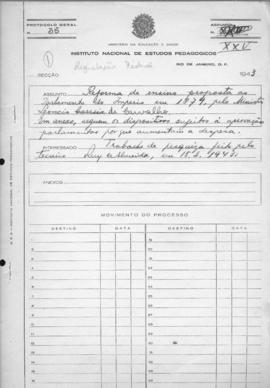 PROTOCOLO GERAL
Nº 35
MINISTÉRIO DA EDUCAÇÃO E SAÚDE
INSTITUTO NACIONAL DE ESTUDOS PEDAGÓGICOS
RIO DE JANEIRO, D. F.
XXV
1
Legislação Federal
SECÇÃO
1943
ASSUNTO: Reforma do ensino proposta ao
Parlamento do Império em 1879, pelo Ministro
Leoncio Carreia de Carvalho.
Em anexo, seguem os dispositivos sujeitos à aprovação
parlamentar porque aumentam a despesa.
INTERESSADO: Trabalho de pesquiza feito pelo
tecnico Ruy de Almeida, em 1943.
ANEXOS:
MOVIMENTO DO PROCESSO
DESTINO DATA DESTINO DATA